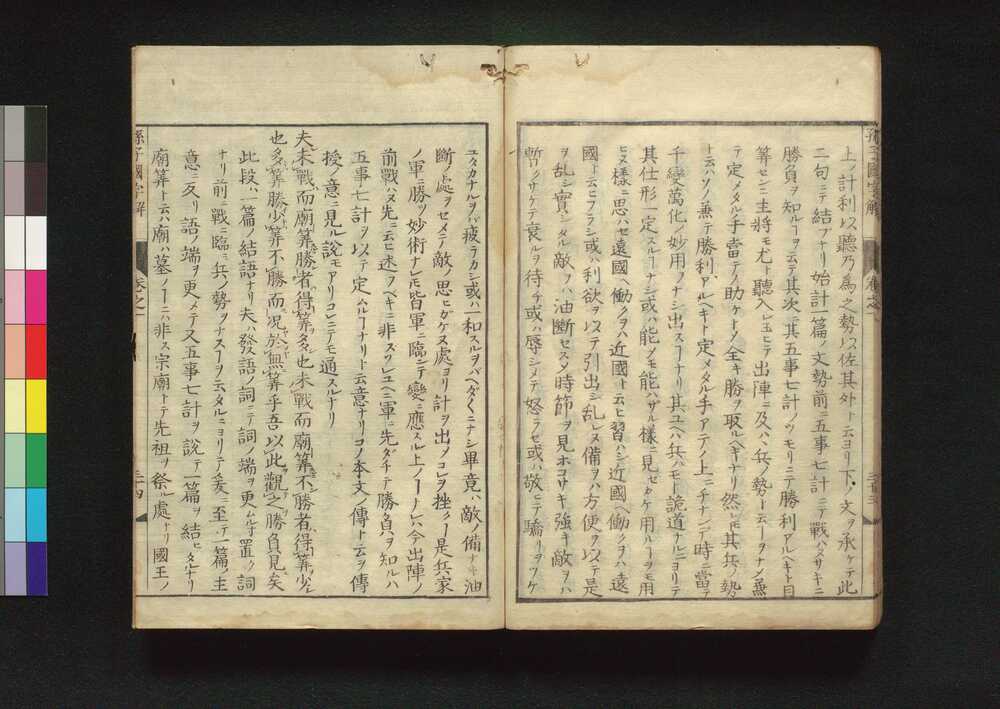 上ノ計利以聽乃爲之勢以佐其外ト云ヨリ下ノ文ヲ承ケテ此
二句ニテ結ブナリ始計一篇ノ文勢前ニ五事七計ニテ戰ハヌサキニ
勝負ヲ知ルヿヲ云テ其次ニ其五事七計ノツモリニテ勝利アルヘキト目
筭センニ主將モ尤ト聽入レ玉ヒテ出陣ニ及ハヽ兵ノ勢ト云ヿヲナノ兼
テ定メタル手當テノ助ケトノ全キ勝ヲ取ルヘキナリ然レ𪜈其兵ノ勢
ト云ハソノ兼テ勝利アルヘキト定メタル手アテノ上ニチナンデ時ニ當テ
千變萬化ノ妙用ヲナシ出スヿナリ其ユヘハ兵ハモト詭道ナルニヨリテ
其仕形一定スルヿナシ或ハ能クモ能ハザル樣ニ見セカケ用ルヿヲモ用
ヒヌ樣ニ思ハセ遠國ヘ働クヲハ近國ト云ヒ習ハシ近國ヘ働クヲハ遠
國ト云ヒフラシ或ハ利欲ヲ以テ引出シ乱レヌ備ヲハ方便ヲ以テ是
ヲ乱シ實シタル敵ヲハ油斷セスノ時節ヲ見ホコサキ強キ敵ヲハ
暫クサケテ衰ルヲ待チ或ハ辱シメテ怒ラセ或ハ敬ヒテ驕リヲツケ
孫子國字解
卷之一
三十三
ユタカナルヲバ疲ラカシ或ハ一和スルヲバヘダ〱ニナシ畢竟ハ敵ノ備ナキ油
斷ノ處ヲセメテ敵ノ思ヒガケヌ處ヨリ計ヲ出メコレヲ挫ク丿是兵家
ノ軍勝ツ妙術ナレ𪜈皆軍ニ臨ンテ變ニ應スル上ノヿニノ今出陣ノ
前戰ハヌ先ニ云ヒ述フヘキニ非スソレユヘニ軍ニ先ダチテ勝負ヲ知ルハ
五事七計ヲ以テ定ムルヿナリト云意ナリコノ本文ノ傳ト云ヲ傳
授ノ意ニ見ル說モアリコレニテモ通スルナリ
夫未戰而廟筭勝者得筭多也未戰而廟筭不勝者得筭少
也多筭勝少筭不勝而況於無筭乎吾以此觀之勝負見矣
此段ハ一篇ノ結語ナリ夫ハ發語ノ詞ニテ詞ノ端ヲ更ムル寸置ク詞
ナリ前ニ戰ニ臨ミ兵ノ勢ヲナスヿヲ云タルニヨリテ爰ニ至テ一篇ノ主
意ニ反リ語ノ端ヲ更メテ又五事七計ヲ說テ一篇ヲ結ヒタルナリ
廟筭ト云ハ廟ハ墓ノヿニハ非ス宗廟トテ先祖ヲ祭ル處ナリ國王ノ
孫子國字解
卷之一
三十四